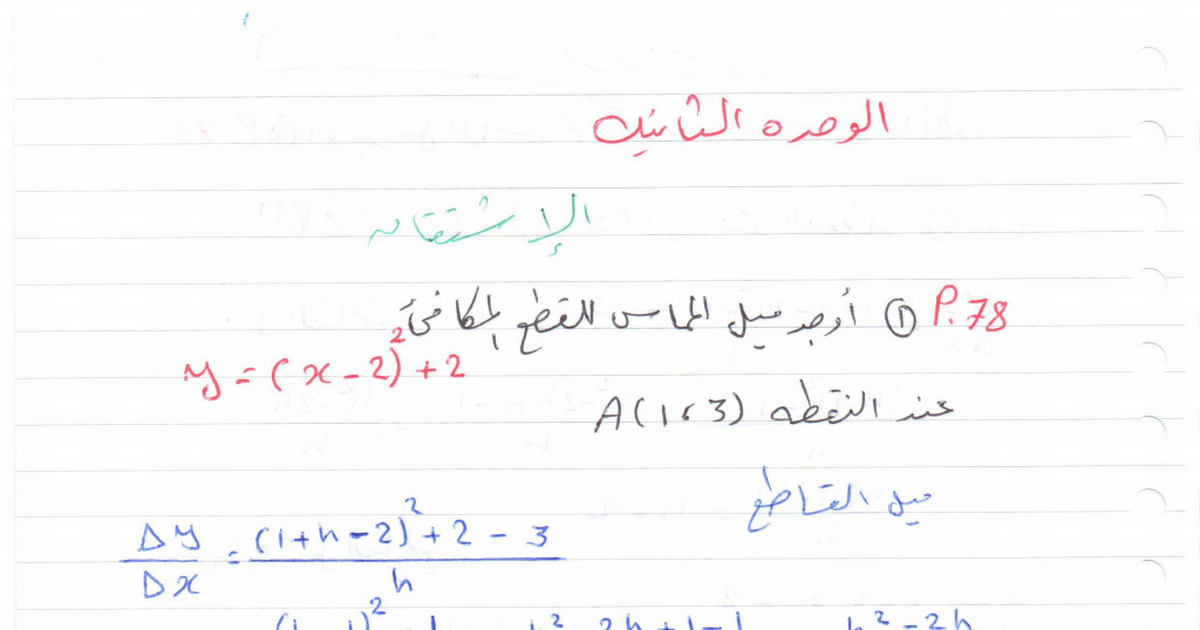 الوحده الثانيه
الإشتقاق
P.78 ① أوجد ميل المماس للقطع المكافئ
y = (x - 2)² + 2
عند النقطه A(1، 3)
ميل القاطع
Δy/Δx = ((1+h-2)² + 2 - 3)/h
h² - 2h + 1 - 1 h² - 2h